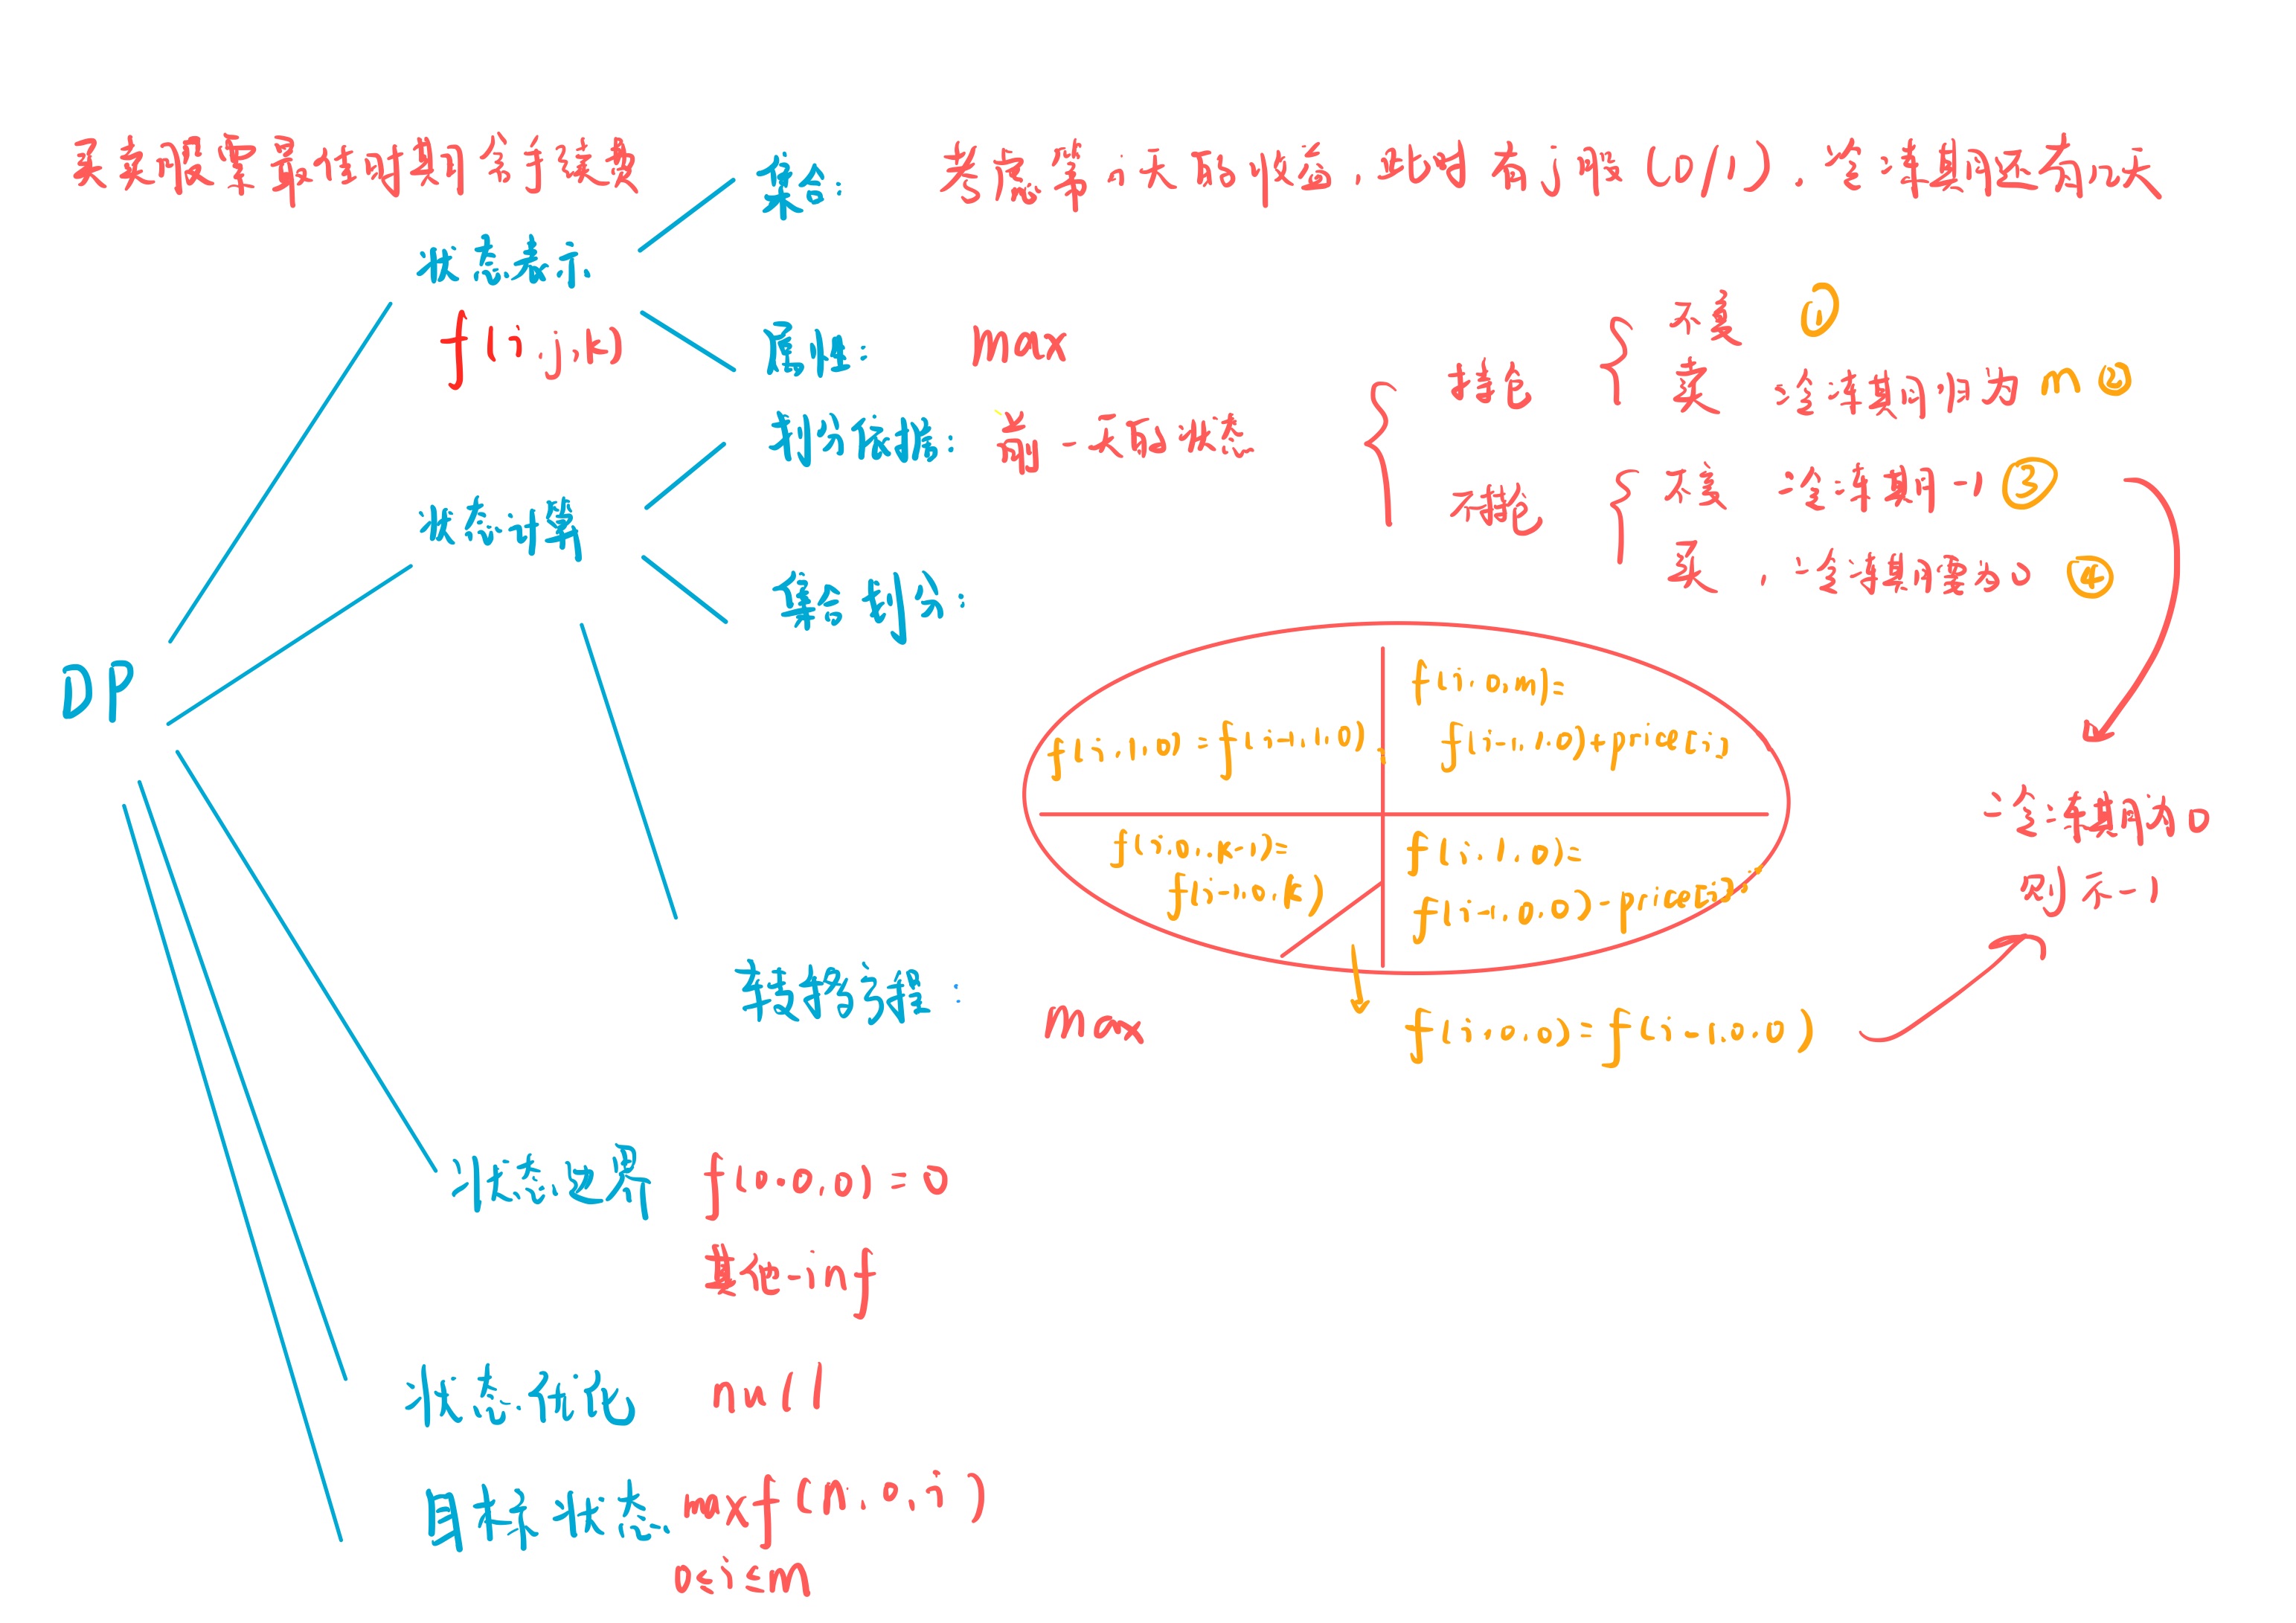 买卖股票最佳时期含冷冻期
集合:
考虑第i天的收益,此时有j股(0/1),冷冻期还有k天
状态表示
f(i,j,k)
属性: max
划分依据: 前一天的状态
持仓
不卖 ①
卖 冷冻期归为m ②
不持仓
不买 冷冻期-1 ③
买,冷冻期需为0 ④
状态计算
集合划分:
DP
f(i,1,0)=f(i-1,1,0)
f(i,0,m)=
f(i-1,1,0)+price[i]
f(i,0,k-1)=
f(i-1,0,k)
f(i,1,0)=
f(i-1,0,0)-price[i]
冷冻期为0
则不-1
转移方程:
max
f(i,0,0)=f(i-1,0,0)
状态边界 f(0,0,0)=0
其他-inf
状态优化 null
目标状态 max f(n,0,i)
0≤i≤m